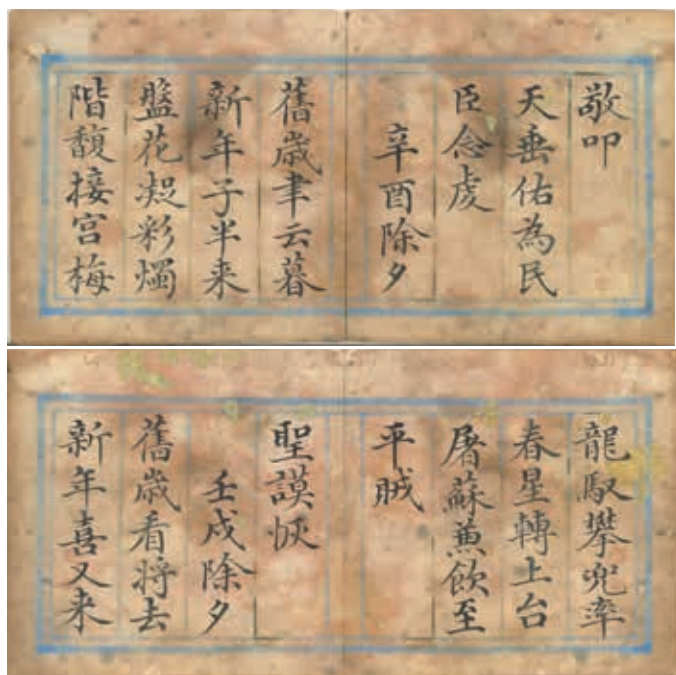 敬叩
天垂佑為民
臣念虔
辛酉除夕
舊歲聿云暮
新年子半来
盤花凝彩燭
階馥接宮梅
龍馭攀兜率
春星轉上台
屠蘇兼飲至
平賊
聖謨恢
壬戌除夕
舊歲看將去
新年喜又来